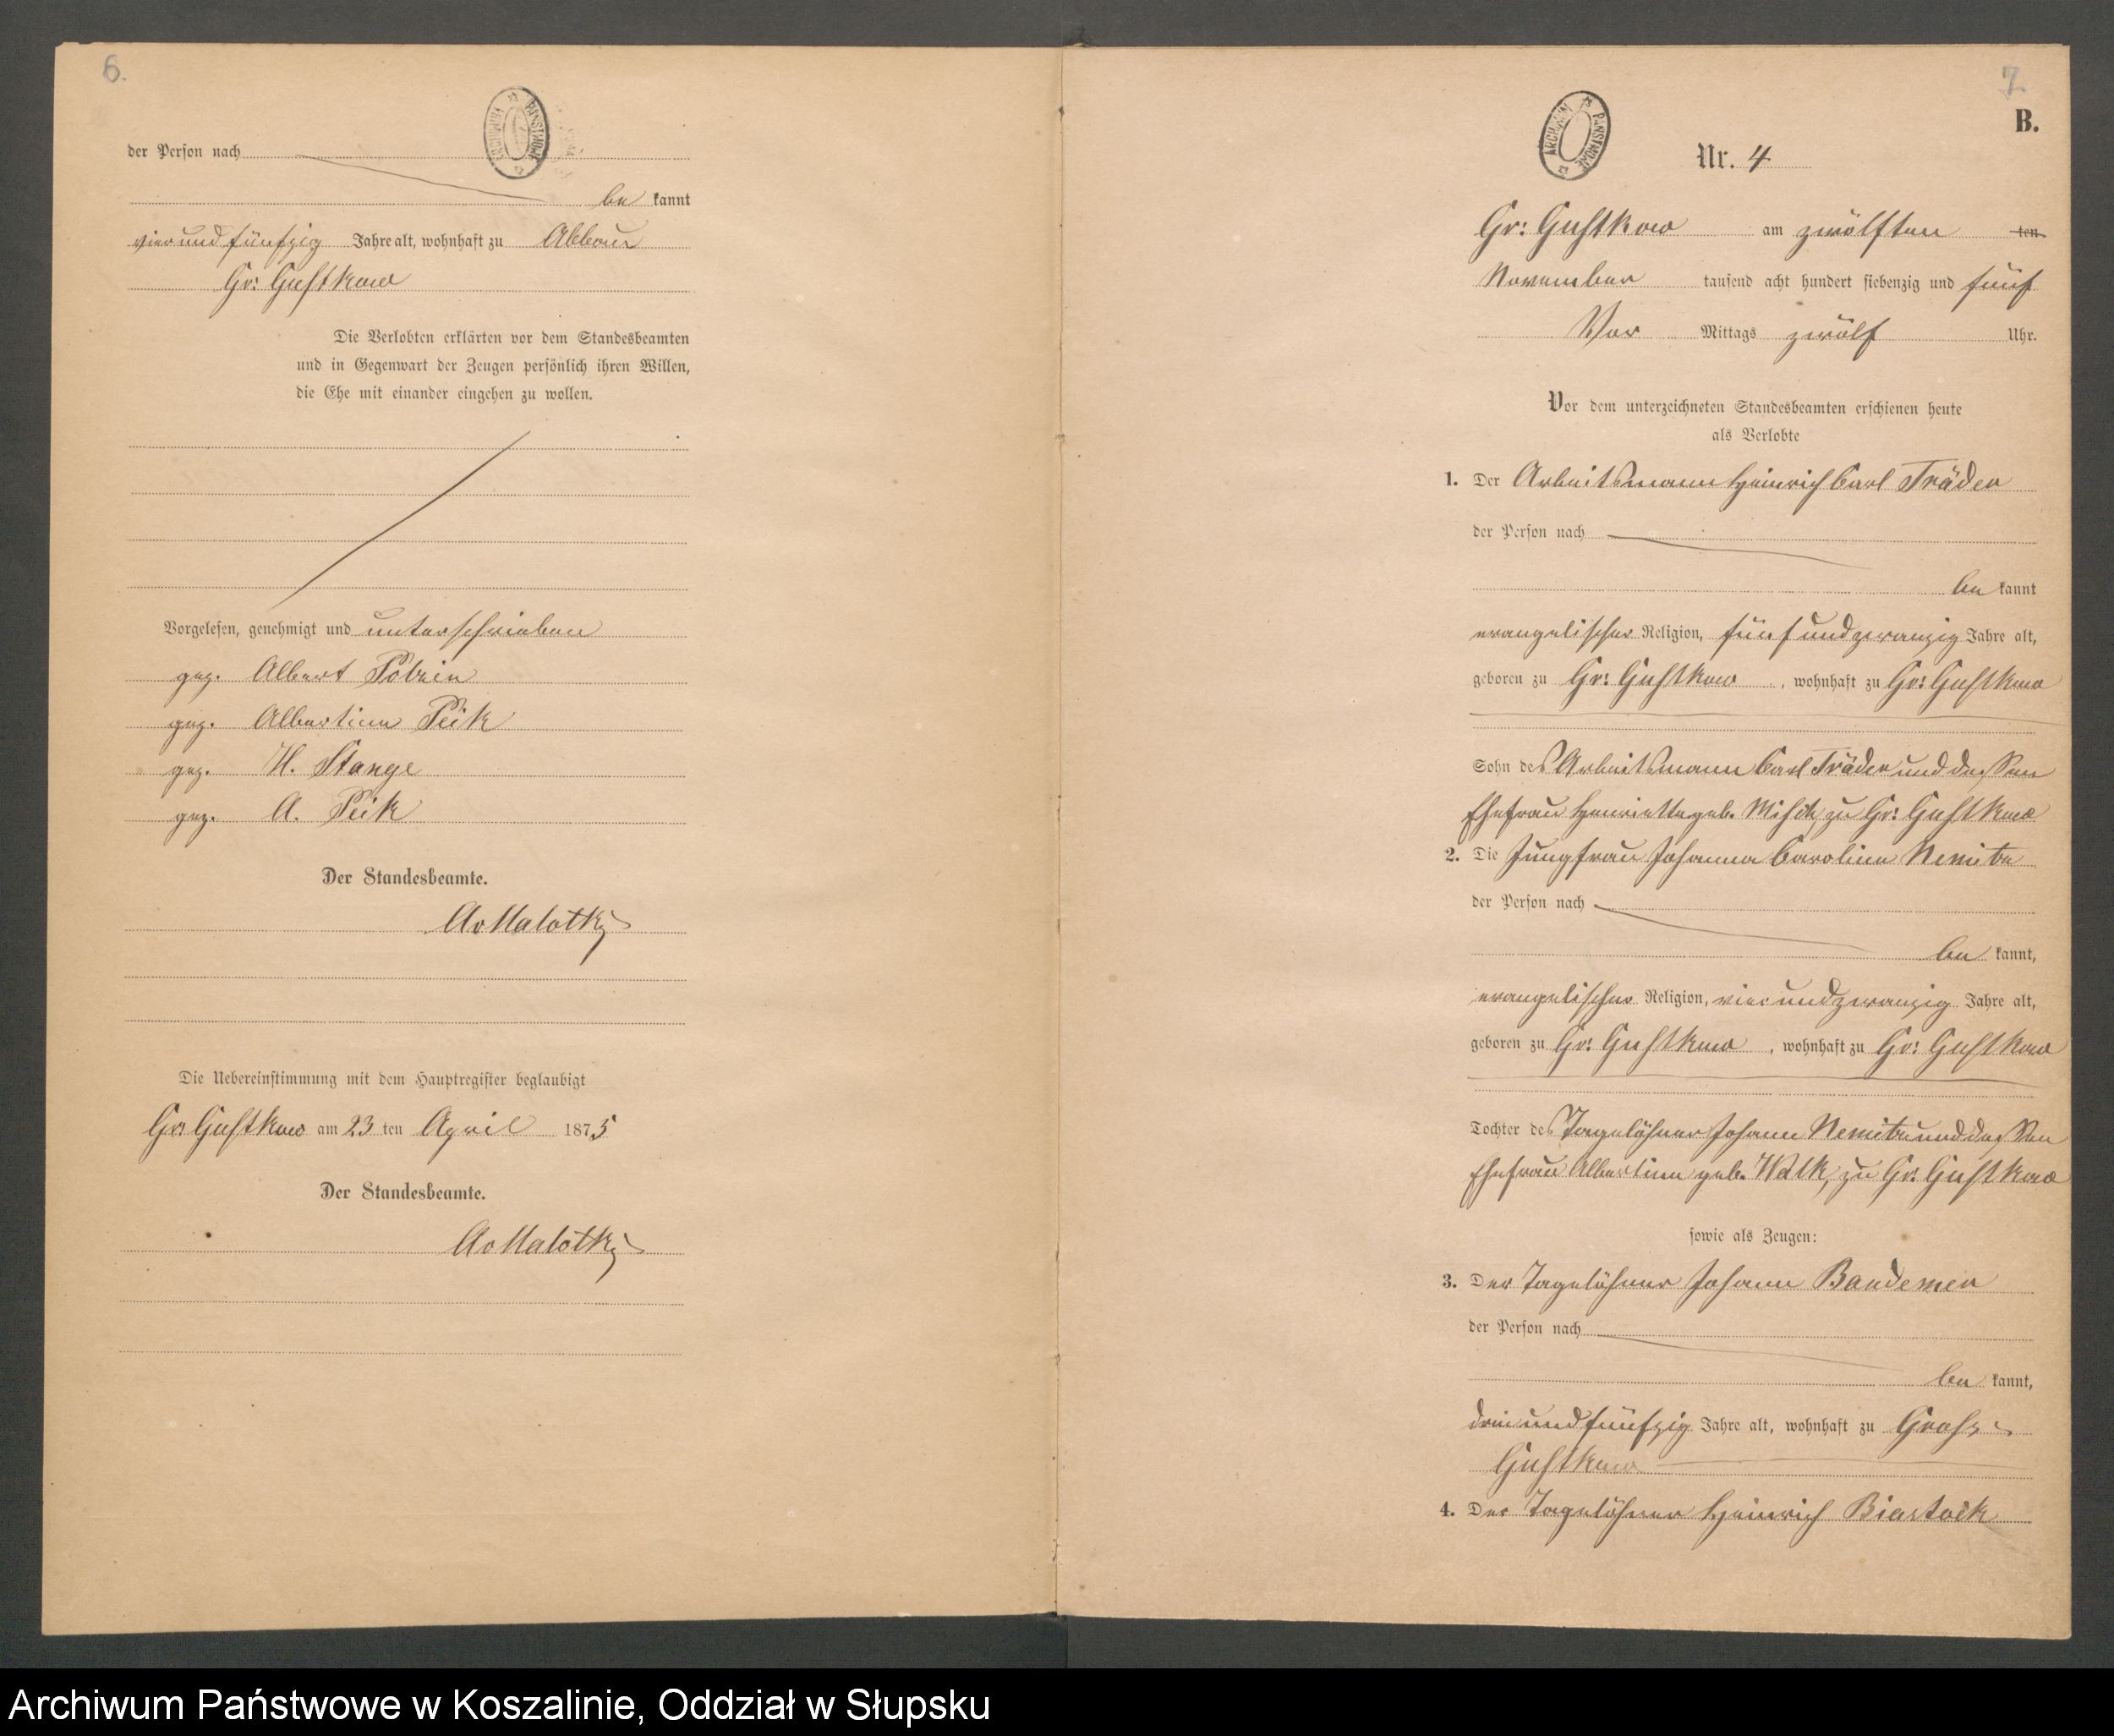 6.
ARCHIWUM PAŃSTWOWE
der Person nach
be kannt
vier und fünfzig Jahre alt, wohnhaft zu Abbau
Gr: Gustkow
Die Verlobten erklärten vor dem Standesbeamten
und in Gegenwart der Zeugen persönlich ihren Willen,
die Ehe mit einander eingehen zu wollen.
Vorgelesen, genehmigt und unterschrieben
gez. Albert
gez. Albertine Peik
gez. H. Stange
gez. A. Peik
Der Standesbeamte.
AvMalottky
Die Uebereinstimmung mit dem Hauptregister beglaubigt
Gr: Gustkow am 23 ten April 1875
Der Standesbeamte.
AvMalottky
7.
B.
ARCHIWUM PAŃSTWOWE
Nr. 4
Gr: Gustkow am zwölften ten
November tausend acht hundert siebenzig und fünf
Vor Mittags zwölf Uhr.
Vor dem unterzeichneten Standesbeamten erschienen heute
als Verlobte
1. Der Arbeitsmann Heinrich Carl Träder
der Person nach
be kannt
evangelischer Religion, fünf und zwanzig Jahre alt,
geboren zu Gr: Gustkow, wohnhaft zu Gr: Gustkow
Sohn des Arbeitsmann Carl Träder und dessen
Ehefrau Henriette geb. zu Gr: Gustkow
2. Die Jungfrau Johanna Caroline Nemitz
der Person nach
be kannt,
evangelischer Religion, vier und zwanzig Jahre alt,
geboren zu Gr: Gustkow, wohnhaft zu Gr: Gustkow
Tochter des Tagelöhner Johann Nemitz und dessen
Ehefrau Albertine geb. zu Gr: Gustkow
sowie als Zeugen:
3. Der Tagelöhner Johann Bandemer
der Person nach
be kannt,
drei und fünfzig Jahre alt, wohnhaft zu Gross
Gustkow
4. Der Tagelöhner Heinrich Biastock
Archiwum Państwowe w Koszalinie, Oddział w Słupsku